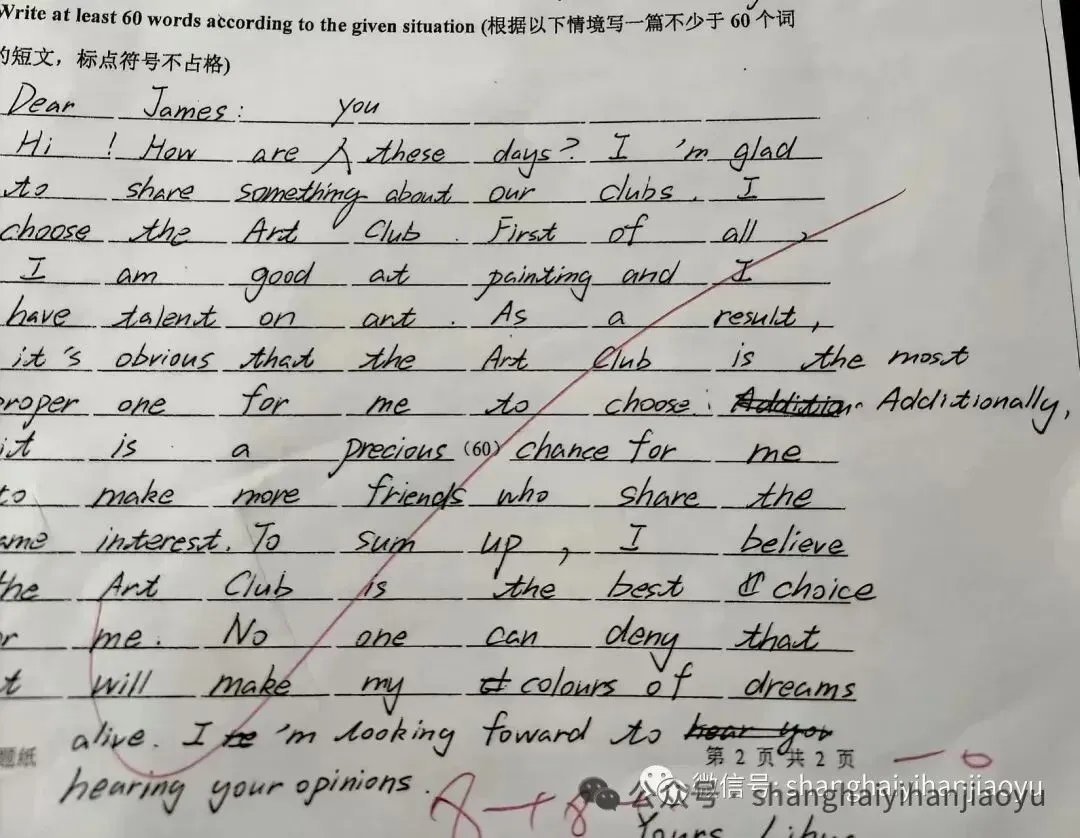 Write at least 60 words according to the given situation (根据以下情境写一篇不少于 60 个词
的短文，标点符号不占格)
Dear James: you
Hi ! How are 人 these days? I 'm glad
to share something about our clubs. I
choose the Art Club. First of all,
I am good at painting and I
have talent on art. As a result,
it's obvious that the Art Club is the most
proper one for me to choose. Addition Additionally,
it is a precious (60) chance for me
to make more friends who share the
ame interest. To sum up, I believe
the Art Club is the best choice
r me. No one can deny that
t will make my colours of dreams
alive. I 'm looking foward to hear you
题纸 第 2 页 共 2 页 -0
hearing your opinions.
微信号: shanghaiyihanjiaoyu
公众号 · shanghaiyihanjiaoyu